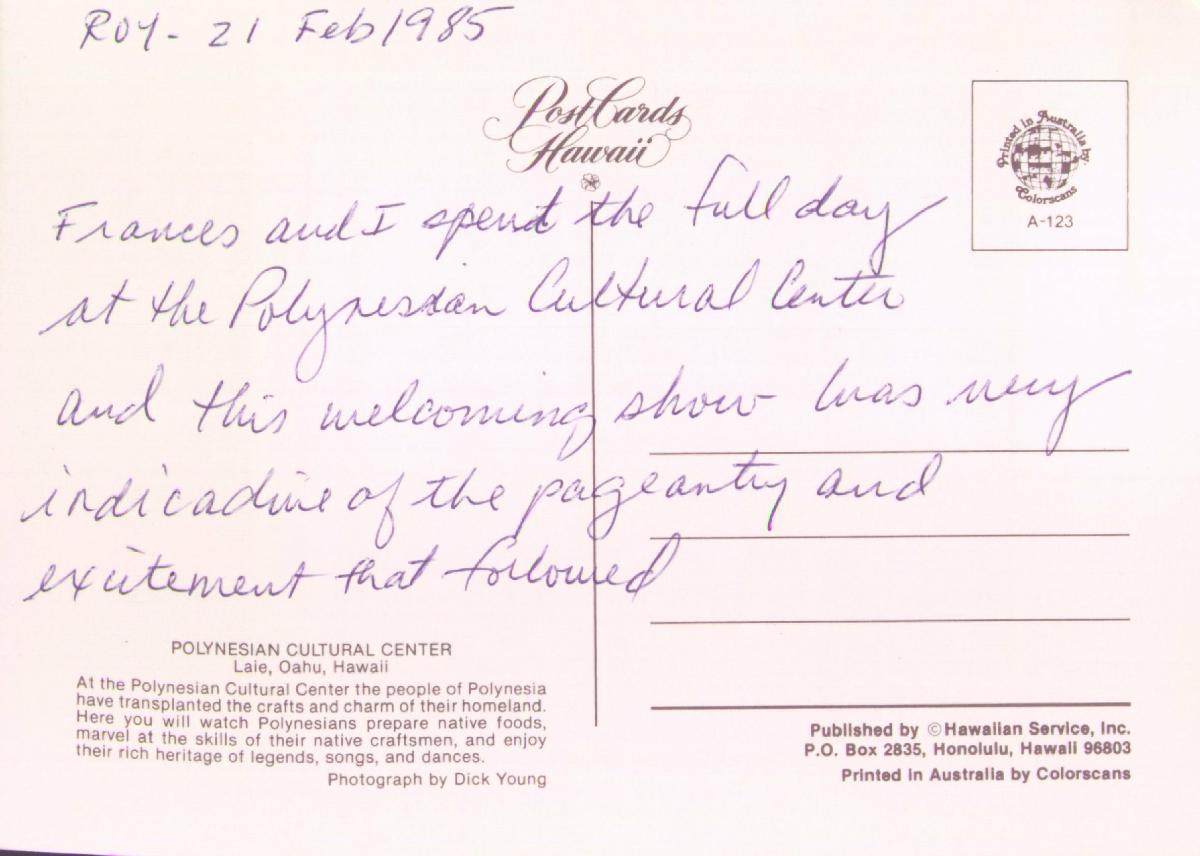 ROY- 21 Feb 1985
PostCards
Hawaii
Printed in Australia by:
Colorscans
A-123
Frances and I spent the full day
at the Polynesian Cultural Center
and this welcoming show was very
indicadive of the pageantry and
excitement that followed
POLYNESIAN CULTURAL CENTER
Laie, Oahu, Hawaii
At the Polynesian Cultural Center the people of Polynesia
have transplanted the crafts and charm of their homeland.
Here you will watch Polynesians prepare native foods,
marvel at the skills of their native craftsmen, and enjoy
their rich heritage of legends, songs, and dances.
Photograph by Dick Young
Published by ©Hawaiian Service, Inc.
P.O. Box 2835, Honolulu, Hawaii 96803
Printed in Australia by Colorscans